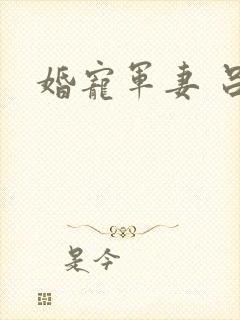 婚寵軍妻 呂
是今